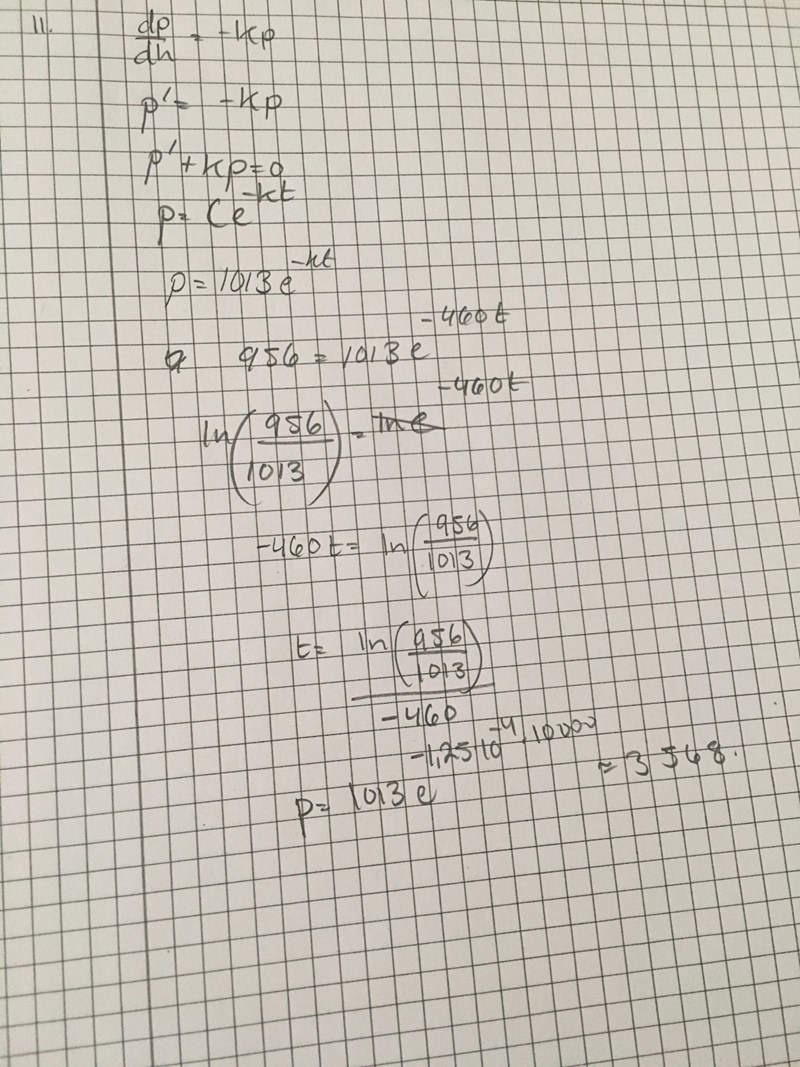 11. dp/dh = -kp
p' = -kp
p' + kp = 0
p = Ce^-kt
p = 1013 e^-kt
a 956 = 1013 e^-460t
ln(956/1013) = ln e^-460t
-460t = ln(956/1013)
t = ln(956/1013)/-460
p = 1013 e^-1,25 10^-4 · 10000 ≈ 3548.